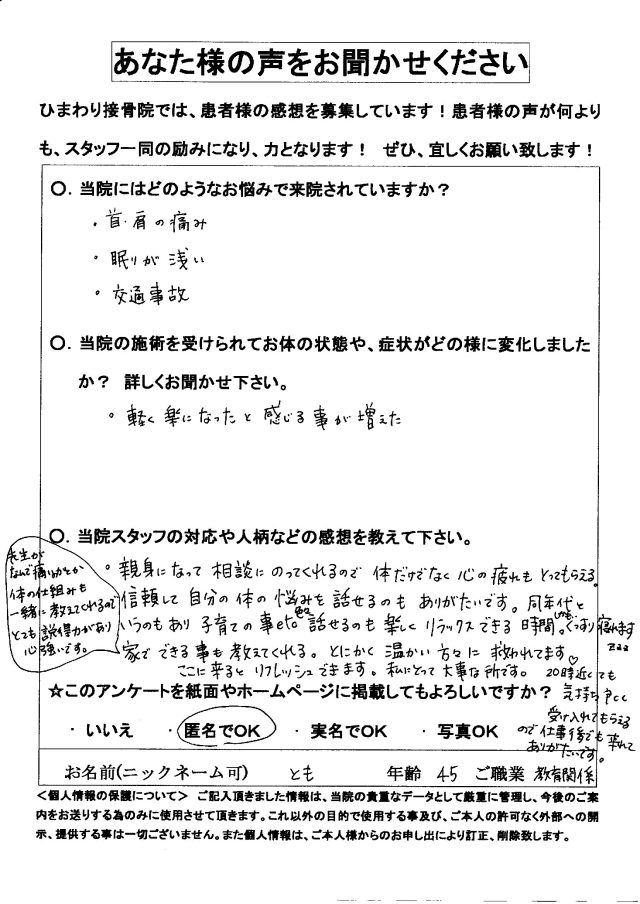 あなた様の声をお聞かせください
ひまわり接骨院では、患者様の感想を募集しています！患者様の声が何より
も、スタッフ一同の励みになり、力となります！　ぜひ、宜しくお願い致します！
〇．当院にはどのようなお悩みで来院されていますか？
・首・肩の痛み
・眠りが浅い
・交通事故
〇．当院の施術を受けられてお体の状態や、症状がどの様に変化しました
か？　詳しくお聞かせ下さい。
・軽く楽になったと感じる事が増えた
〇．当院スタッフの対応や人柄などの感想を教えて下さい。
先生が
なんで痛いのかとか
体の仕組みも
一緒に教えてくれるので
とても説得力があり
心強いです。
・親身になって相談にのってくれるので体だけでなく心の疲れもとってもらえる。
信頼して自分の体の悩みを話せるのもありがたいです。同年代と
いうのもあり子育ての事etc話せるのも楽しくリラックスできる時間。いつもぐっすり寝れます
zzz
家でできる事も教えてくれる。とにかく温かい方々に救われてます♡
ここに来るとリフレッシュできます。私にとって大事な所です。
20時近くても
気持ちよく
受け入れてもらえる
ので仕事後でも来れて
ありがたいです。
☆このアンケートを紙面やホームページに掲載してもよろしいですか？
・いいえ　・匿名でOK　・実名でOK　・写真OK
お名前(ニックネーム可)　とも　年齢　45　ご職業　教育関係
＜個人情報の保護について＞　ご記入頂きました情報は、当院の貴重なデータとして厳重に管理し、今後のご案
内をお送りする為のみに使用させて頂きます。これ以外の目的で使用する事及び、ご本人の許可なく外部への開
示、提供する事は一切ございません。また個人情報は、ご本人様からのお申し出により訂正、削除致します。